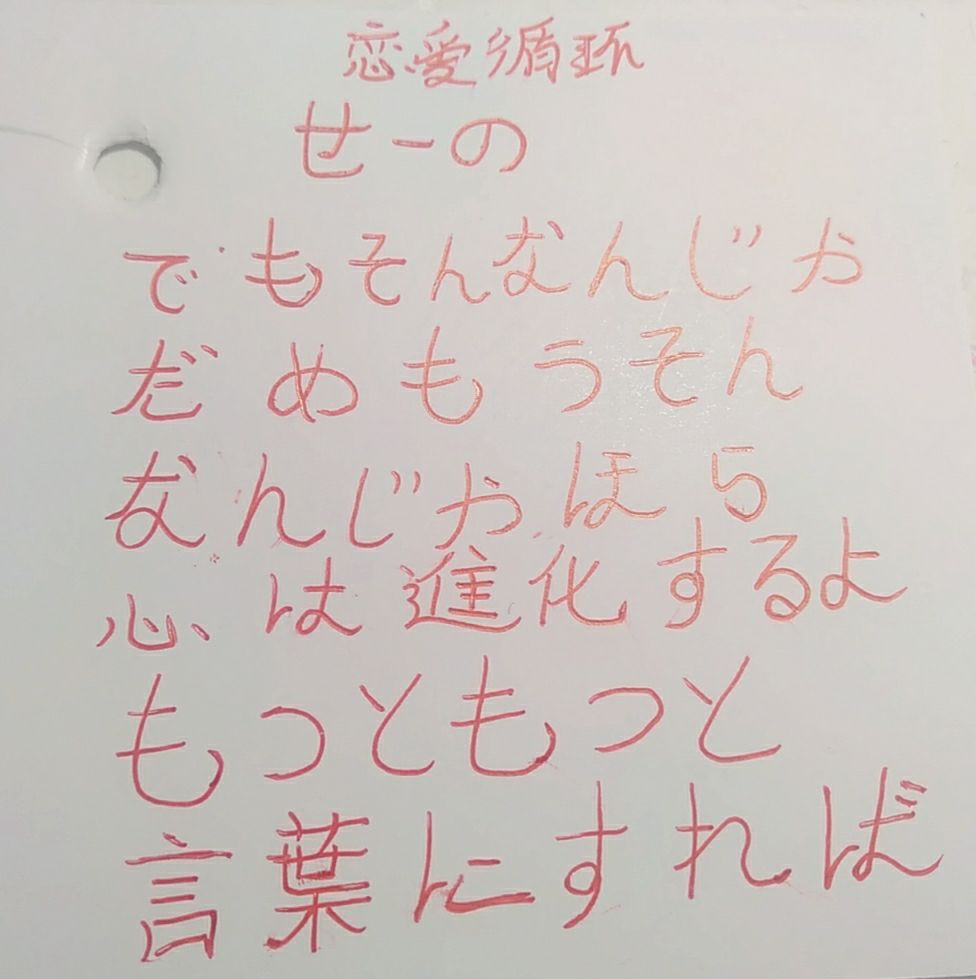 恋愛循环
せーの
でもそんなんじゃ
だめもうそん
なんじゃほら
心は進化するよ
もっともっと
言葉にすれば